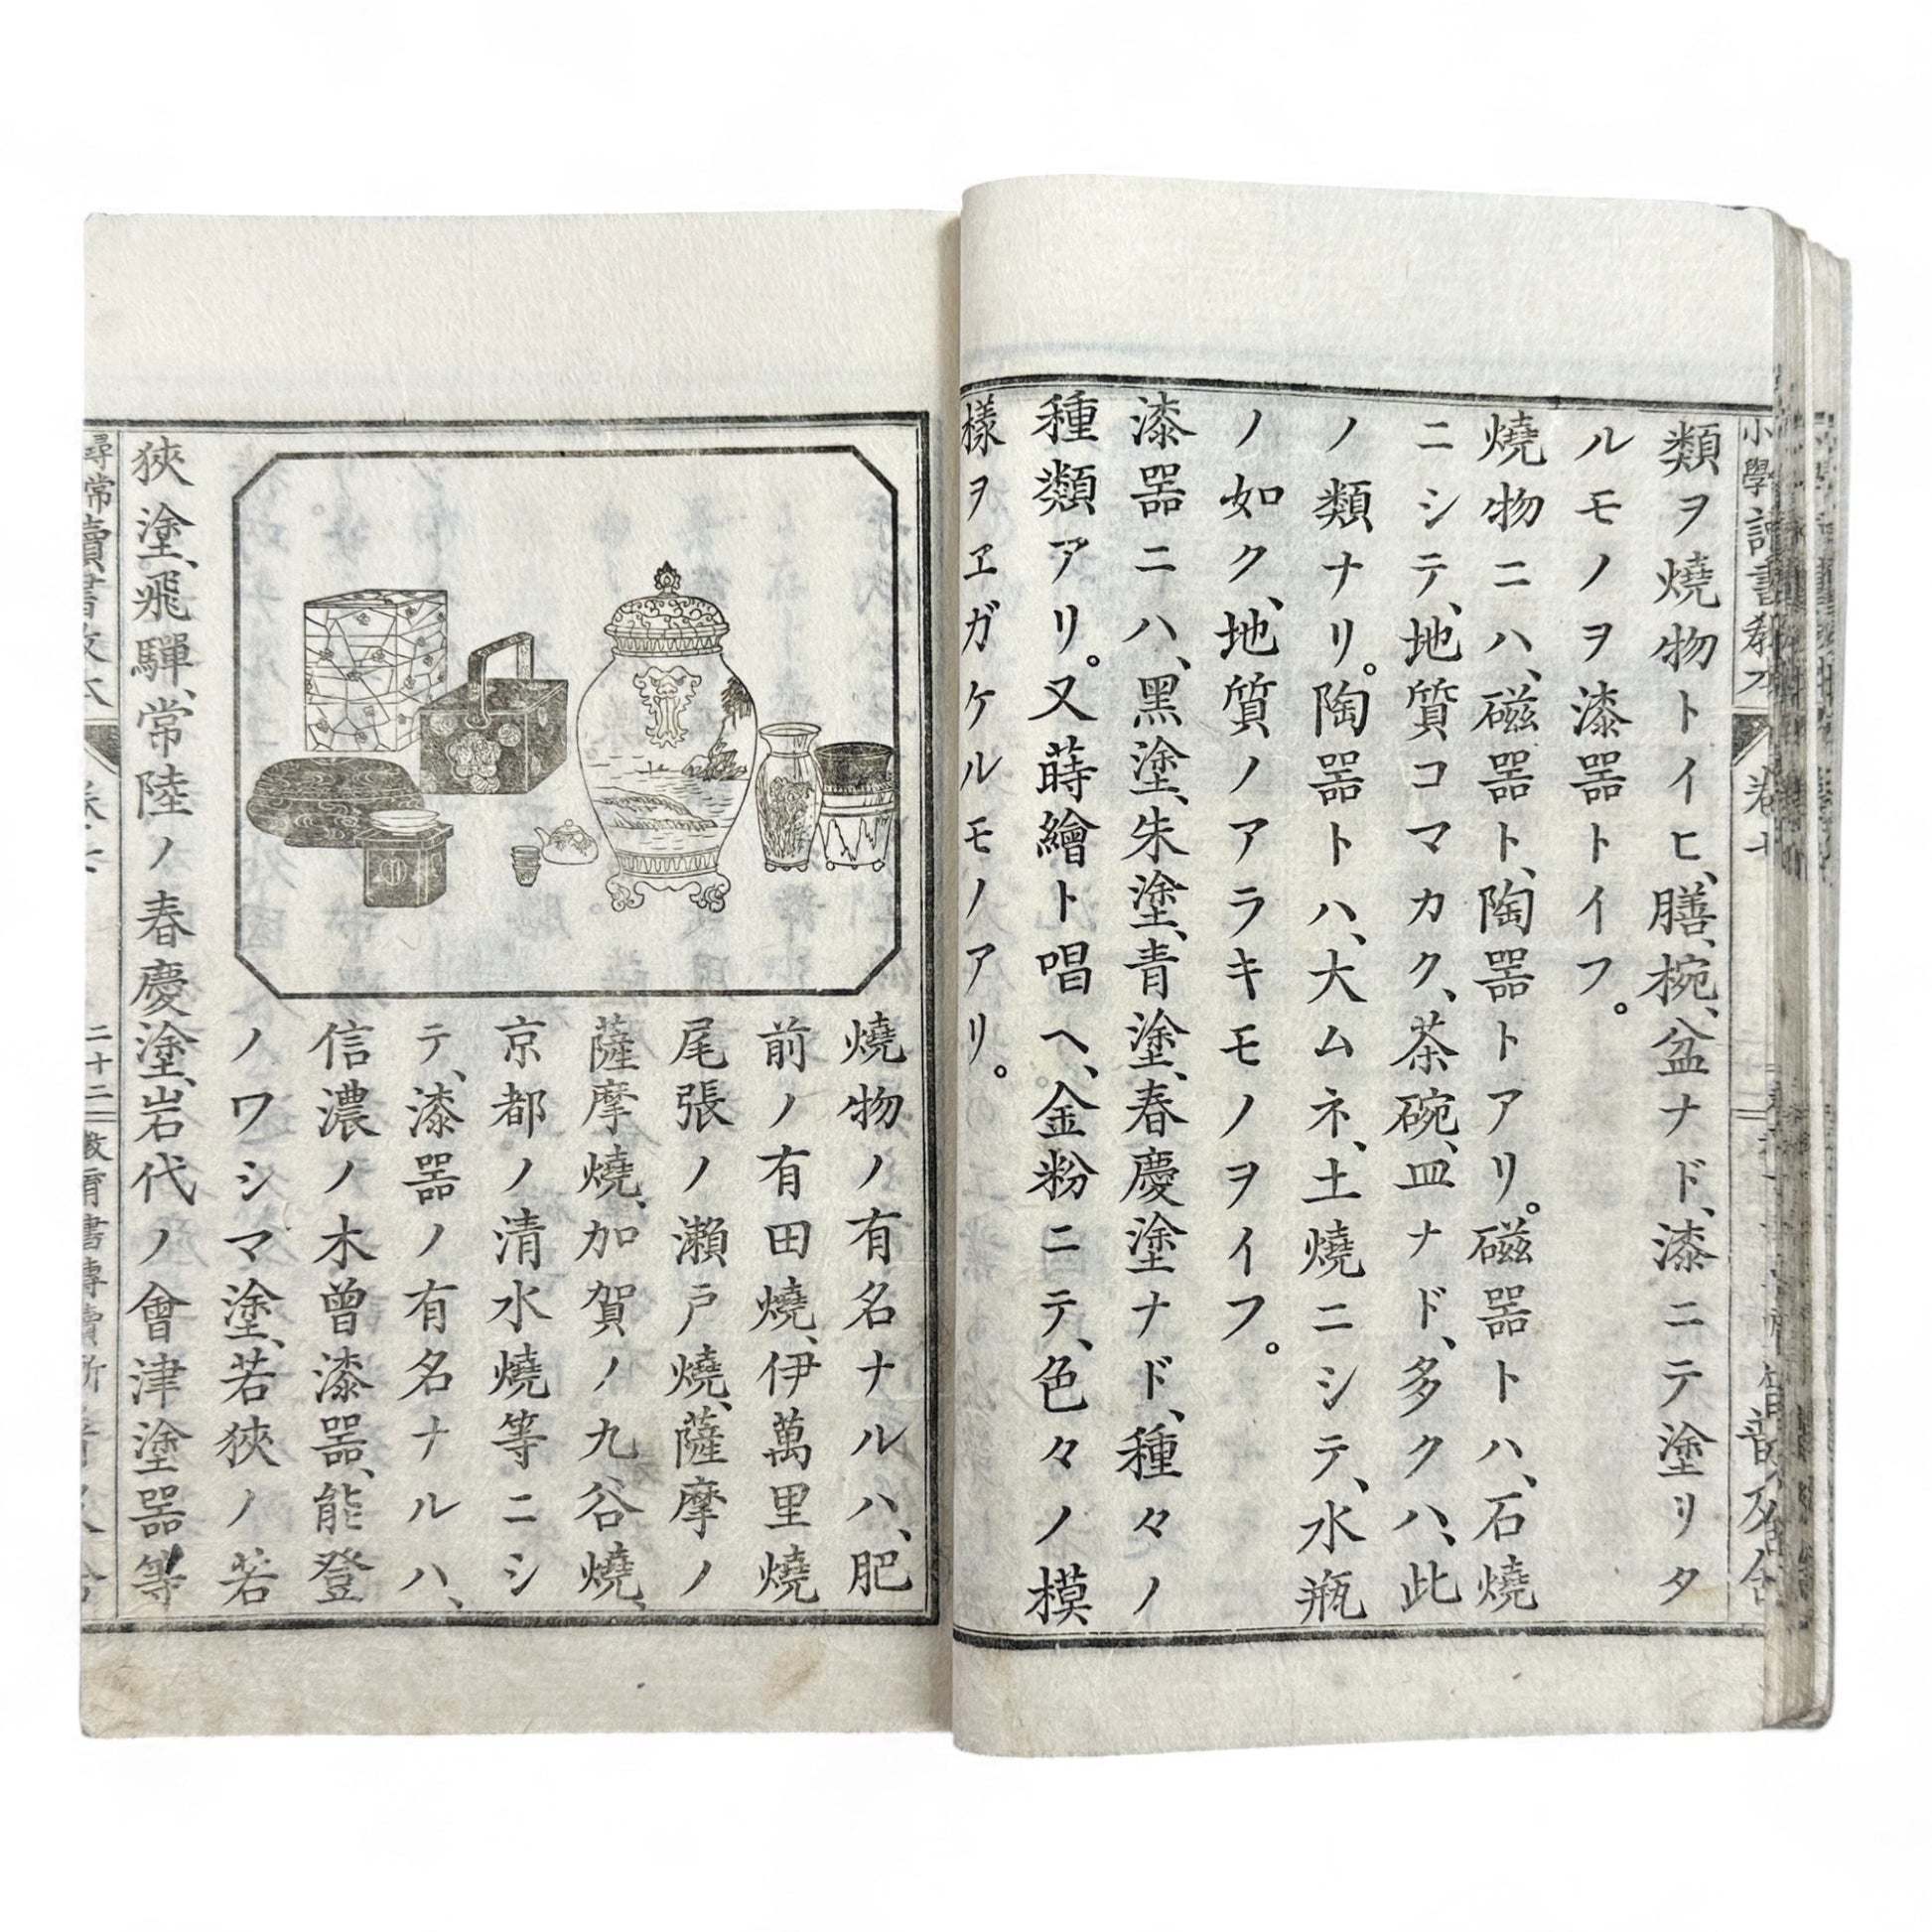 類ヲ燒物トイヒ、膳、椀、盆ナド、漆ニテ塗リタ
ルモノヲ漆器トイフ。
燒物ニハ、磁器ト、陶器トアリ。磁器トハ、石燒
ニシテ、地質コマカク、茶碗、皿ナド、多クハ、此
ノ類ナリ。陶器トハ、大ムネ、土燒ニシテ、水瓶
ノ如ク、地質ノアラキモノヲイフ。
漆器ニハ、黑塗、朱塗、青塗、春慶塗ナド、種々ノ
種類アリ。又蒔繪ト唱ヘ、金粉ニテ、色々ノ模
樣ヲヱガケルモノアリ。
燒物ノ有名ナルハ、肥
前ノ有田燒、伊萬里燒
尾張ノ瀨戸燒、薩摩ノ
薩摩燒、加賀ノ九谷燒、
京都ノ清水燒等ニシ
テ、漆器ノ有名ナルハ、
信濃ノ木曾漆器、能登
ノワシマ塗、若狹ノ若
狹塗、飛驒、常陸ノ春慶塗、岩代ノ會津塗器等
尋常讀書教本
二十二